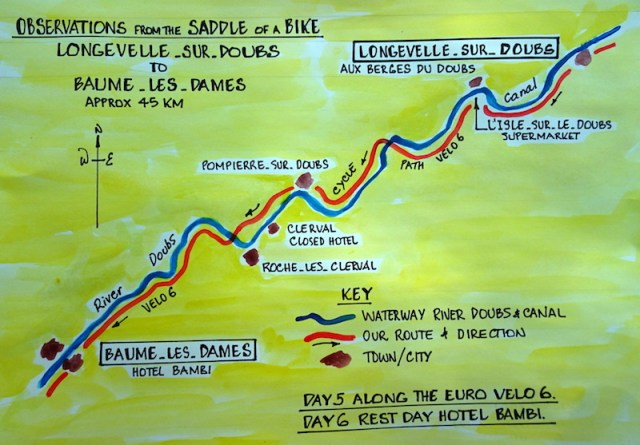 OBSERVATIONS FROM THE SADDLE OF A BIKE
LONGEVELLE-SUR-DOUBS
TO
BAUME-LES-DAMES
APPROX 45 KM
LONGEVELLE-SUR-DOUBS
AUX BERGES DU DOUBS
Canal
L'ISLE-SUR-LE-DOUBS
SUPERMARKET
N
W E
POMPIERRE-SUR-DOUBS
CYCLE PATH VELO 6
CLERVAL
CLOSED HOTEL
ROCHE-LES-CLERVAL
River Doubs
VELO 6
BAUME-LES-DAMES
HOTEL BAMBI
KEY
WATERWAY RIVER DOUBS & CANAL
OUR ROUTE & DIRECTION
TOWN/CITY
DAY 5 ALONG THE EURO VELO 6.
DAY 6 REST DAY HOTEL BAMBI.